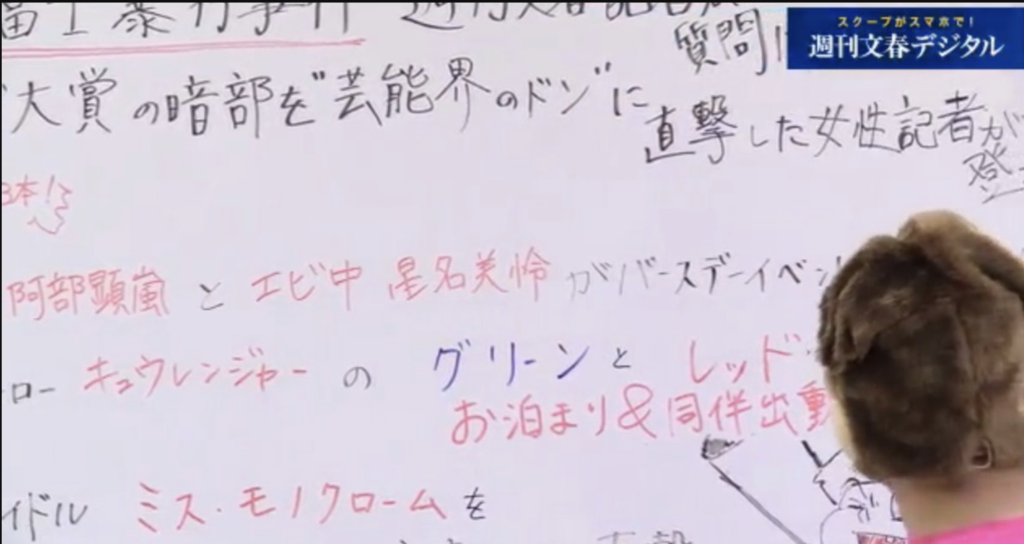 富士暴行事件
質問
スクープがスマホで!
週刊文春デジタル
大賞の暗部を"芸能界のドン"に
直撃した女性記者が
登
3本!
阿部顕嵐と エビ中 星名美怜 がバースデーイベン
ロー キュウレンジャー の グリーン と レッド
お泊まり&同伴出動
イドル ミス・モノクロームを